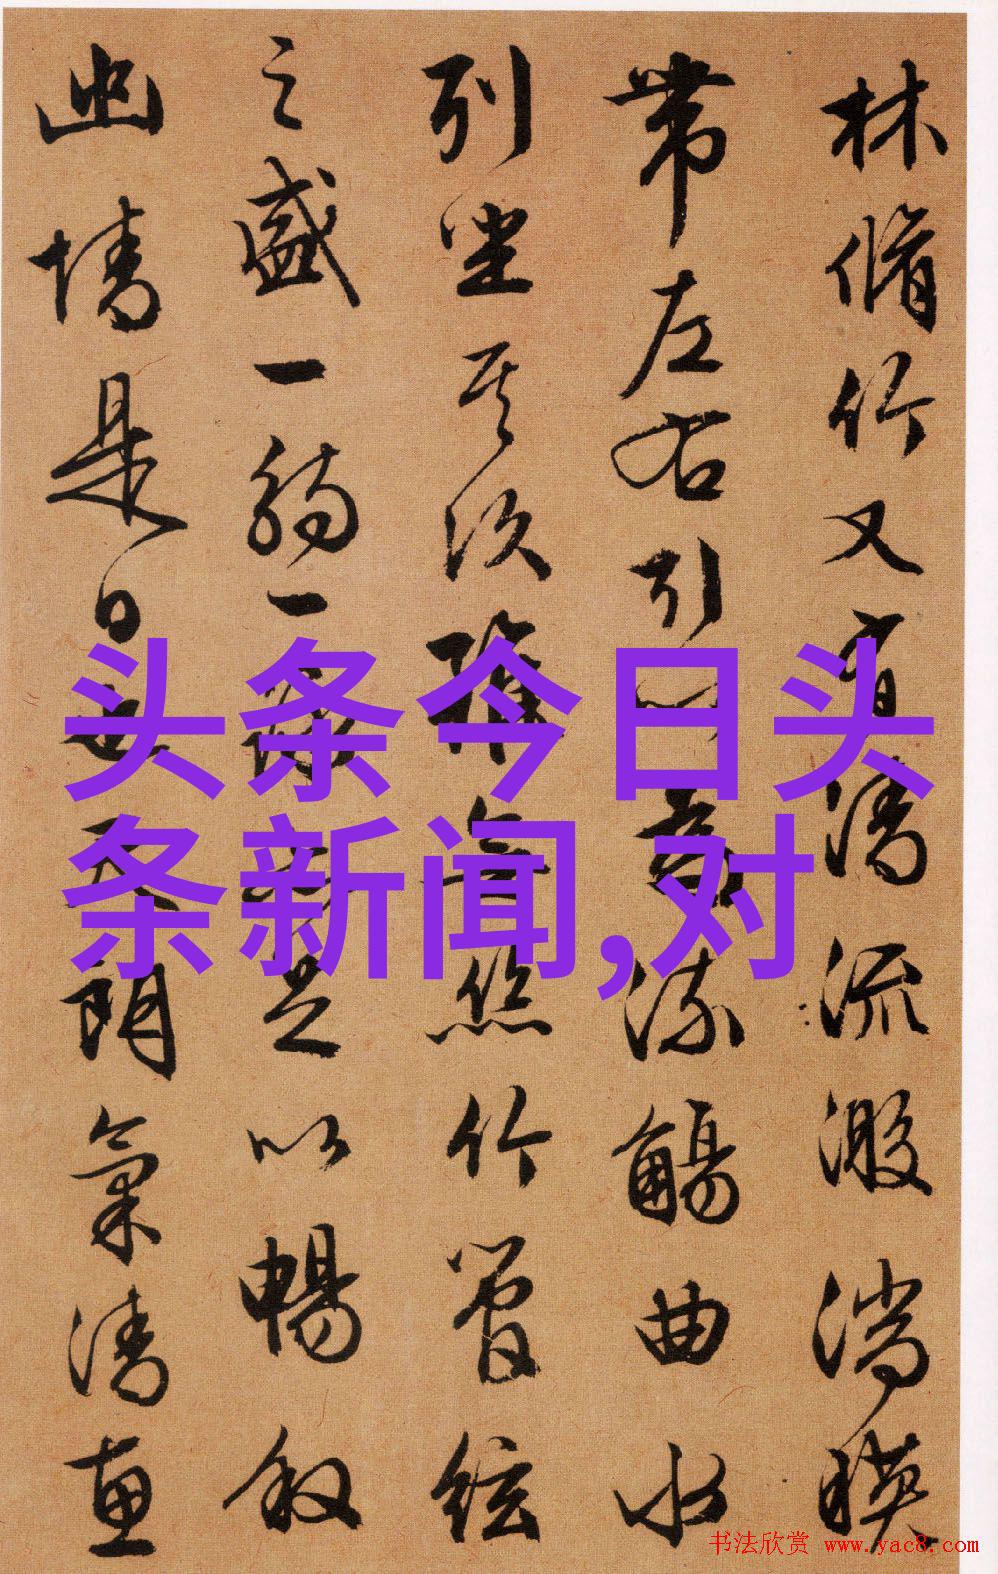 林脩竹又有清流激湍暎
帶左右引以為流觴曲水
列坐其次雖無絲竹管絃
之盛一觴一詠亦足以暢叙
幽情是日也天朗氣清惠
头条今日头
条新闻,对
书法欣赏 www.yac8.com